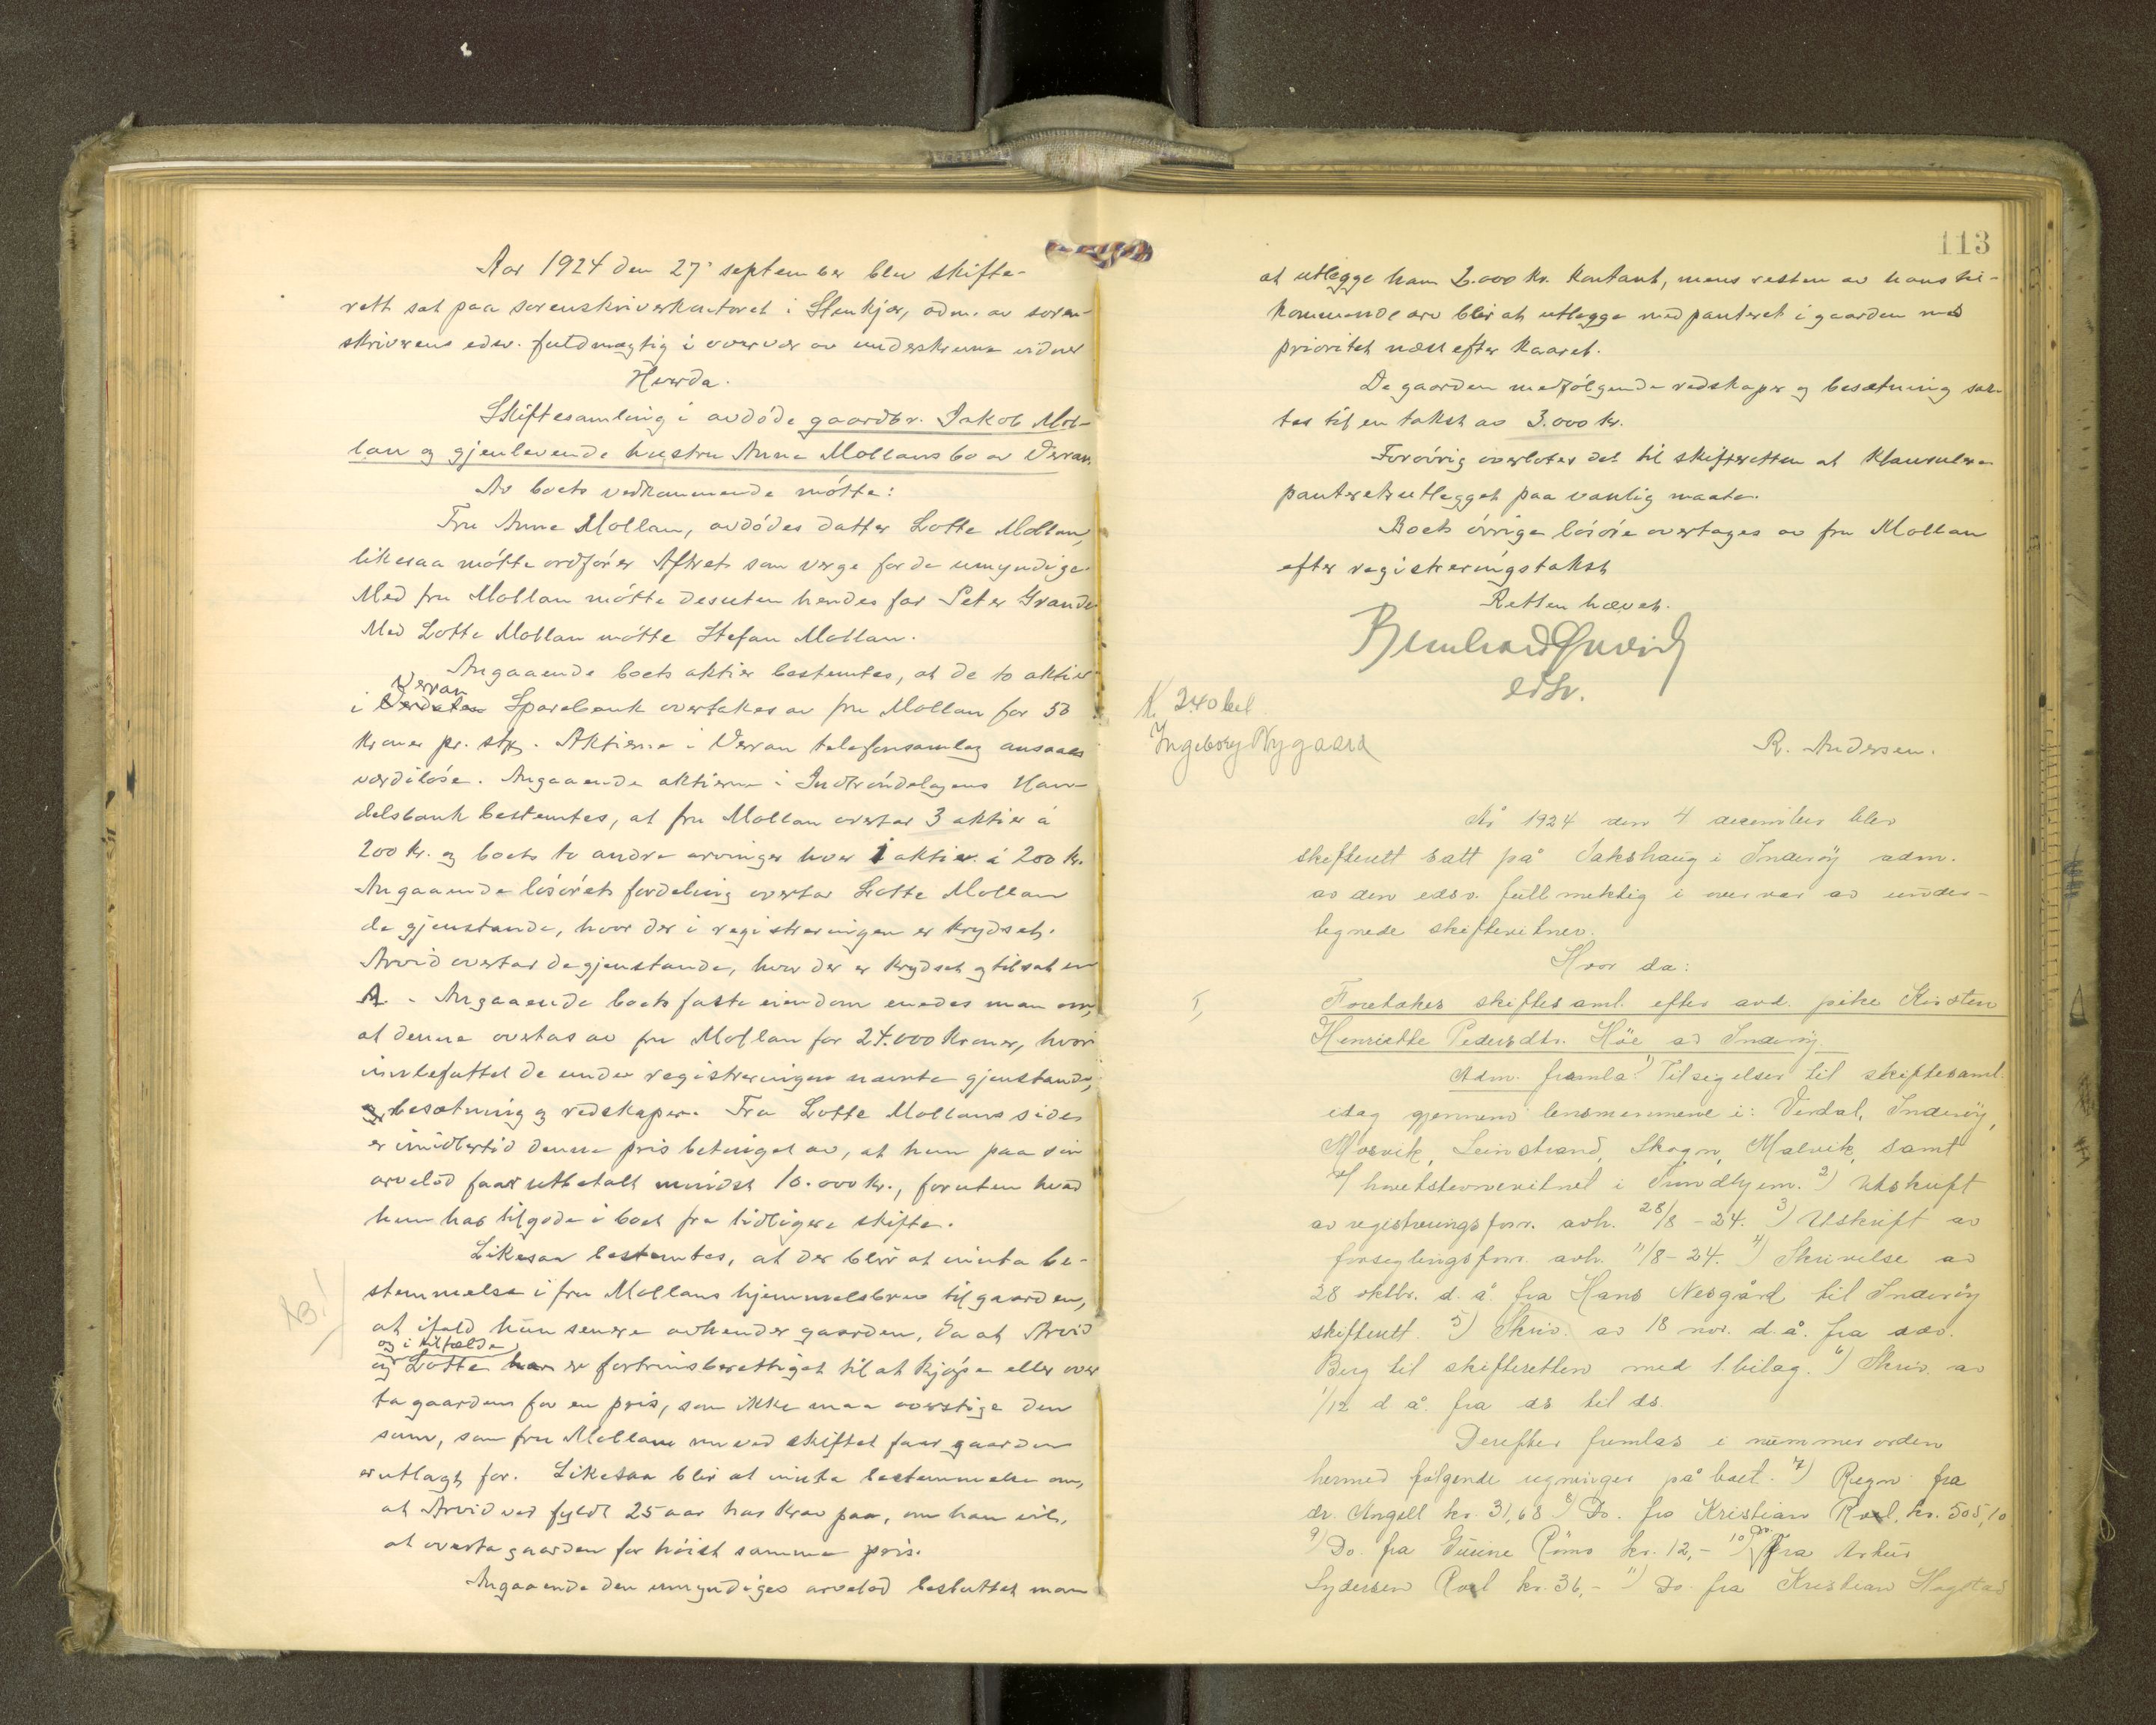 Aar 1924 den 27' september blev skifte-
rett sat paa sorenskriverkontoret i Stenkjær, adm. av soren-
skriverens edsv. fuldmægtig i overvær av underskrevne vidner
Hvorda.
Skiftesamling i avdöde gaardbr. Jakob Mol-
lan og gjenlevende hustru Anne Mollans bo av Verran.
Av boets vedkommende mötte:
Fru Anne Mollan, avdödes datter Lotte Mollan,
likesaa mötte ordförer Aftret som verge for de umyndige.
Med fru Mollan mötte desuten hendes far Peter Grande
Med Lotte Mollan mötte Stefan Mollan.
Angaaende boets aktier bestemtes, at de to aktier
Verran
i Sparebank overtakes av fru Mollan for 50
kroner pr. stk. Aktierne i Verran telefonsamlag ansaaes
værdilöse. Angaaende aktierne i Indtröndelagens Han-
delsbank bestemtes, at fru Mollan overtar 3 aktier á
200 kr. og boets to andre arvinger hver 1 aktier á 200 kr.
Angaaende lösörets fordeling overtar Lotte Mollan
de gjenstande, hvor der i registreringen er krydset.
Arvid overtar de gjenstande, hvor der er krydset og tilsat en
A. - Angaaende boets faste eiendom enedes man om,
at denne overtas av fru Mollan for 24.000 kroner, hvori
innbefattet de under registreringen nævnte gjenstande,
og besætning og redskaper. Fra Lotte Mollans side
er imidlertid denne pris betinget av, at hun paa sin
arvelod faar utbetalt mindst 10.000 kr., foruten hvad
hun har tilgode i boet fra tidligere skifte.
Likesaa bestemtes, at der blir at innta be-
stemmelse i fru Mollans hjemmelsbrev til gaarden,
NB!
at ifald hun senere avhender gaarden, da at Arvid
og i tilfælde
og Lotte har er fortrinsberettiget til at kjöpe eller over
ta gaarden for en pris, som ikke maa overstige den
sum, som fru Mollan nu ved skiftet faar gaarden
er utlagt for. Likesaa blir at innta bestemmelse om,
at Arvid ved fyldt 25 aar har krav paa, om han vil,
at overta gaarden for höist samme pris.
Angaaende den umyndiges arvelod besluttet man
113
at utlegge ham 2.000 kr. kontant, mens resten av hans til-
kommende arv blir at utlegge med panteret i gaarden med
prioritet næst efter kaaret.
De gaarden medfölgende redskaper og besætning sat-
tes til en takst av 3.000 kr.
Forövrig overlotes det til skifteretten at klausulere
panteretsutlegget paa vanlig maate.
Boets övrige lösöre overtages av fru Mollan
efter registreringstakst
Retten hævet.
Bernhard
edsv.
K 240 bet
Ingeborg Nygaard
R. Andersen.
År 1924 den 4 december blev
skifterett satt på Sakshaug i Inderöy adm.
av den edsv. fullmektig i overvær av under-
tegnede skiftevitner.
Hvor da:
I,
Foretokes skiftesaml. efter avd. pike Kirsten
Henriette Pedersdtr. Höe av Inderöy.
Adm. framla: 1) Tilsigelser til skiftesaml.
idag gjennem lensmennene i: Verdal, Inderöy,
Mosvik, Leinstrand, Skogn, Malvik, samt
hovedstevnevitnet i Trondhjem. 2) Utskrift
av registreringsforr. avh. 28/8 - 24. 3) Utskrift av
forseglingsforr. avh. 11/8 - 24. 4) Skrivelse av
28 oktbr. d. å. fra Hans Nesgård til Inderöy
skifterett. 5) Skriv. av 18 nov. d. å. fra adv.
Berg til skifteretten med 1. bilag. 6) Skriv. av
1/12 d. å. fra ds til ds.
Derefter fremlas i nummerorden
hermed følgende regninger på boet. 7) Regn fra
dr. Angell kr. 31,68 8) Do. fra Kristian Roel, kr. 505,10
9) Do. fra Gurine Römo kr. 12,- 10) Do. fra Arthur
Sydersen Roel kr. 36,- 11) Do. fra Kristian Hagstad